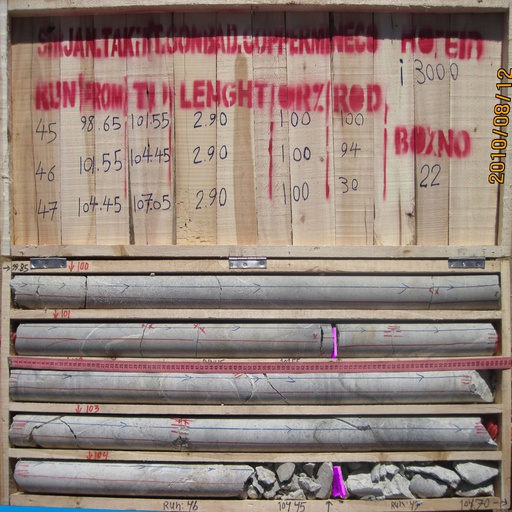 SIRJAN.TAKHT.GONBAD.COPPERMINECO HOLEID
i 3000
RUN FROM TO LENGHT CR% RQD
45 98.65 101.55 2.90 100 100
BOX.NO
46 101.55 104.45 2.90 100 94
22
47 104.45 107.05 2.90 100 30
2010/08/12
99.85
100
101
103
104
Run: 46 104.45 Run: 47 104.70